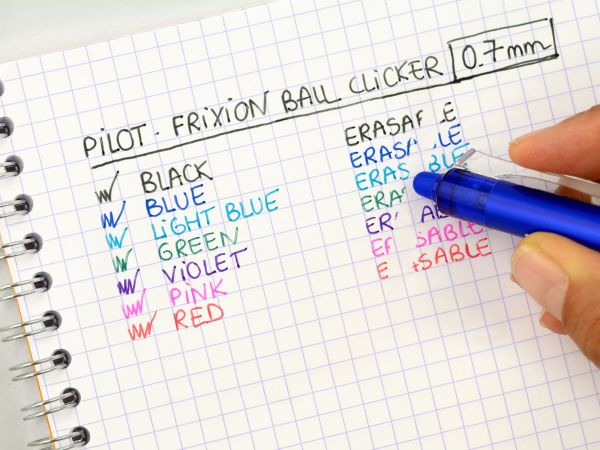 PILOT. FRIXION BALL CLICKER 0.7mm
BLACK
BLUE
LIGHT BLUE
GREEN
VIOLET
PINK
RED
ERASA E
ERAS BLE
ERAS BLE
ERA
ER AB
E SABLE
E SABLE